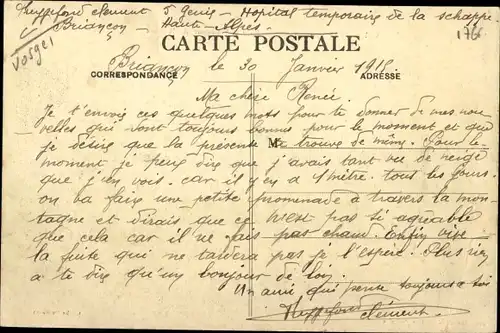 clement 5 Genie - Hopital temporaire de la schappe
Briançon - Hautes-Alpes -
Vosges
176
CARTE POSTALE
Briançon le 30 Janvier 1915
CORRESPONDANCE
ADRESSE
Ma chère Renée
Je t'envois ces quelques mots pour te donner de mes nou-
velles qui sont toujours bonnes pour le moment et que
je désire que la présente te trouve de même. Pour le
M
moment je peux dire que j'avais tant vu de neige
que j'en vois. car il y en a 1 mètre. tous les jours.
on va faire une petite promenade à travers la mon-
tagne et dirais que ce n'est pas si agréable
que cela car il ne fais pas chaud. Enfin vive
la fuite qui ne tardera pas je l'espère. Plus rien
a te dire qu'un bonjour de loin.
Un ami qui pense toujours a toi
clément.